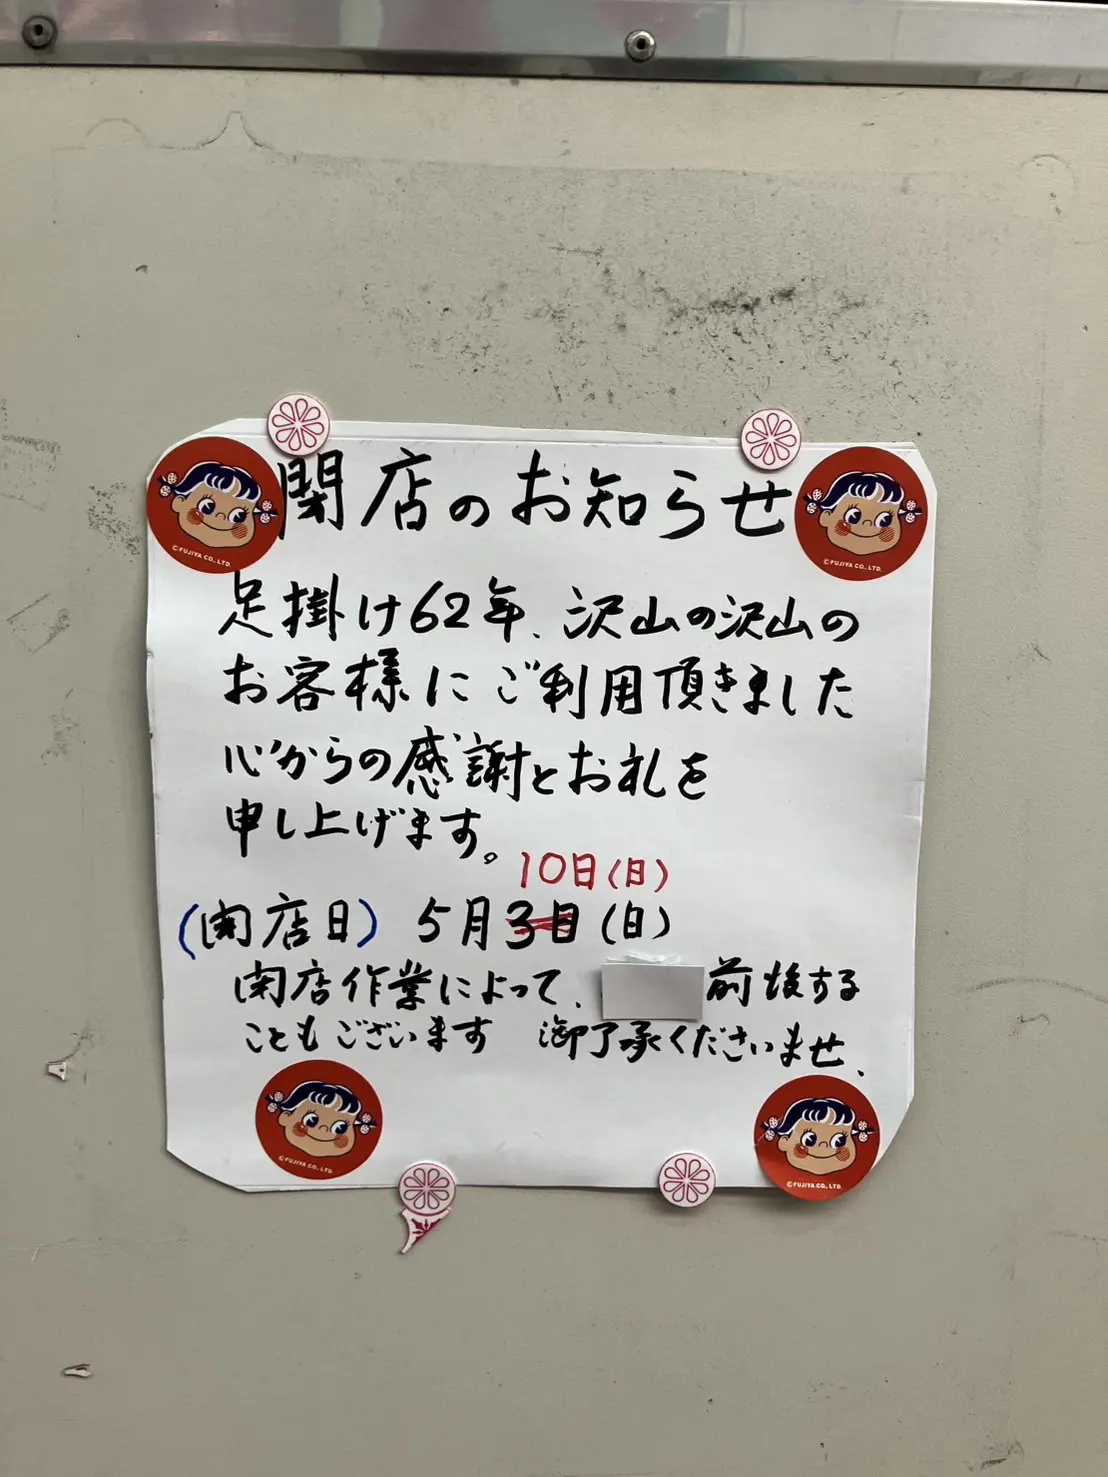 閉店のお知らせ
足掛け62年、沢山の沢山の
お客様にご利用頂きました
心からの感謝とお礼を
申し上げます。
10日(日)
(閉店日) 5月3日(日)
閉店作業によって、 前後する
こともございます 御了承くださいませ、
©FUJIYA CO., LTD.
©FUJIYA CO., LTD.
©FUJIYA CO., LTD.
©FUJIYA CO., LTD.